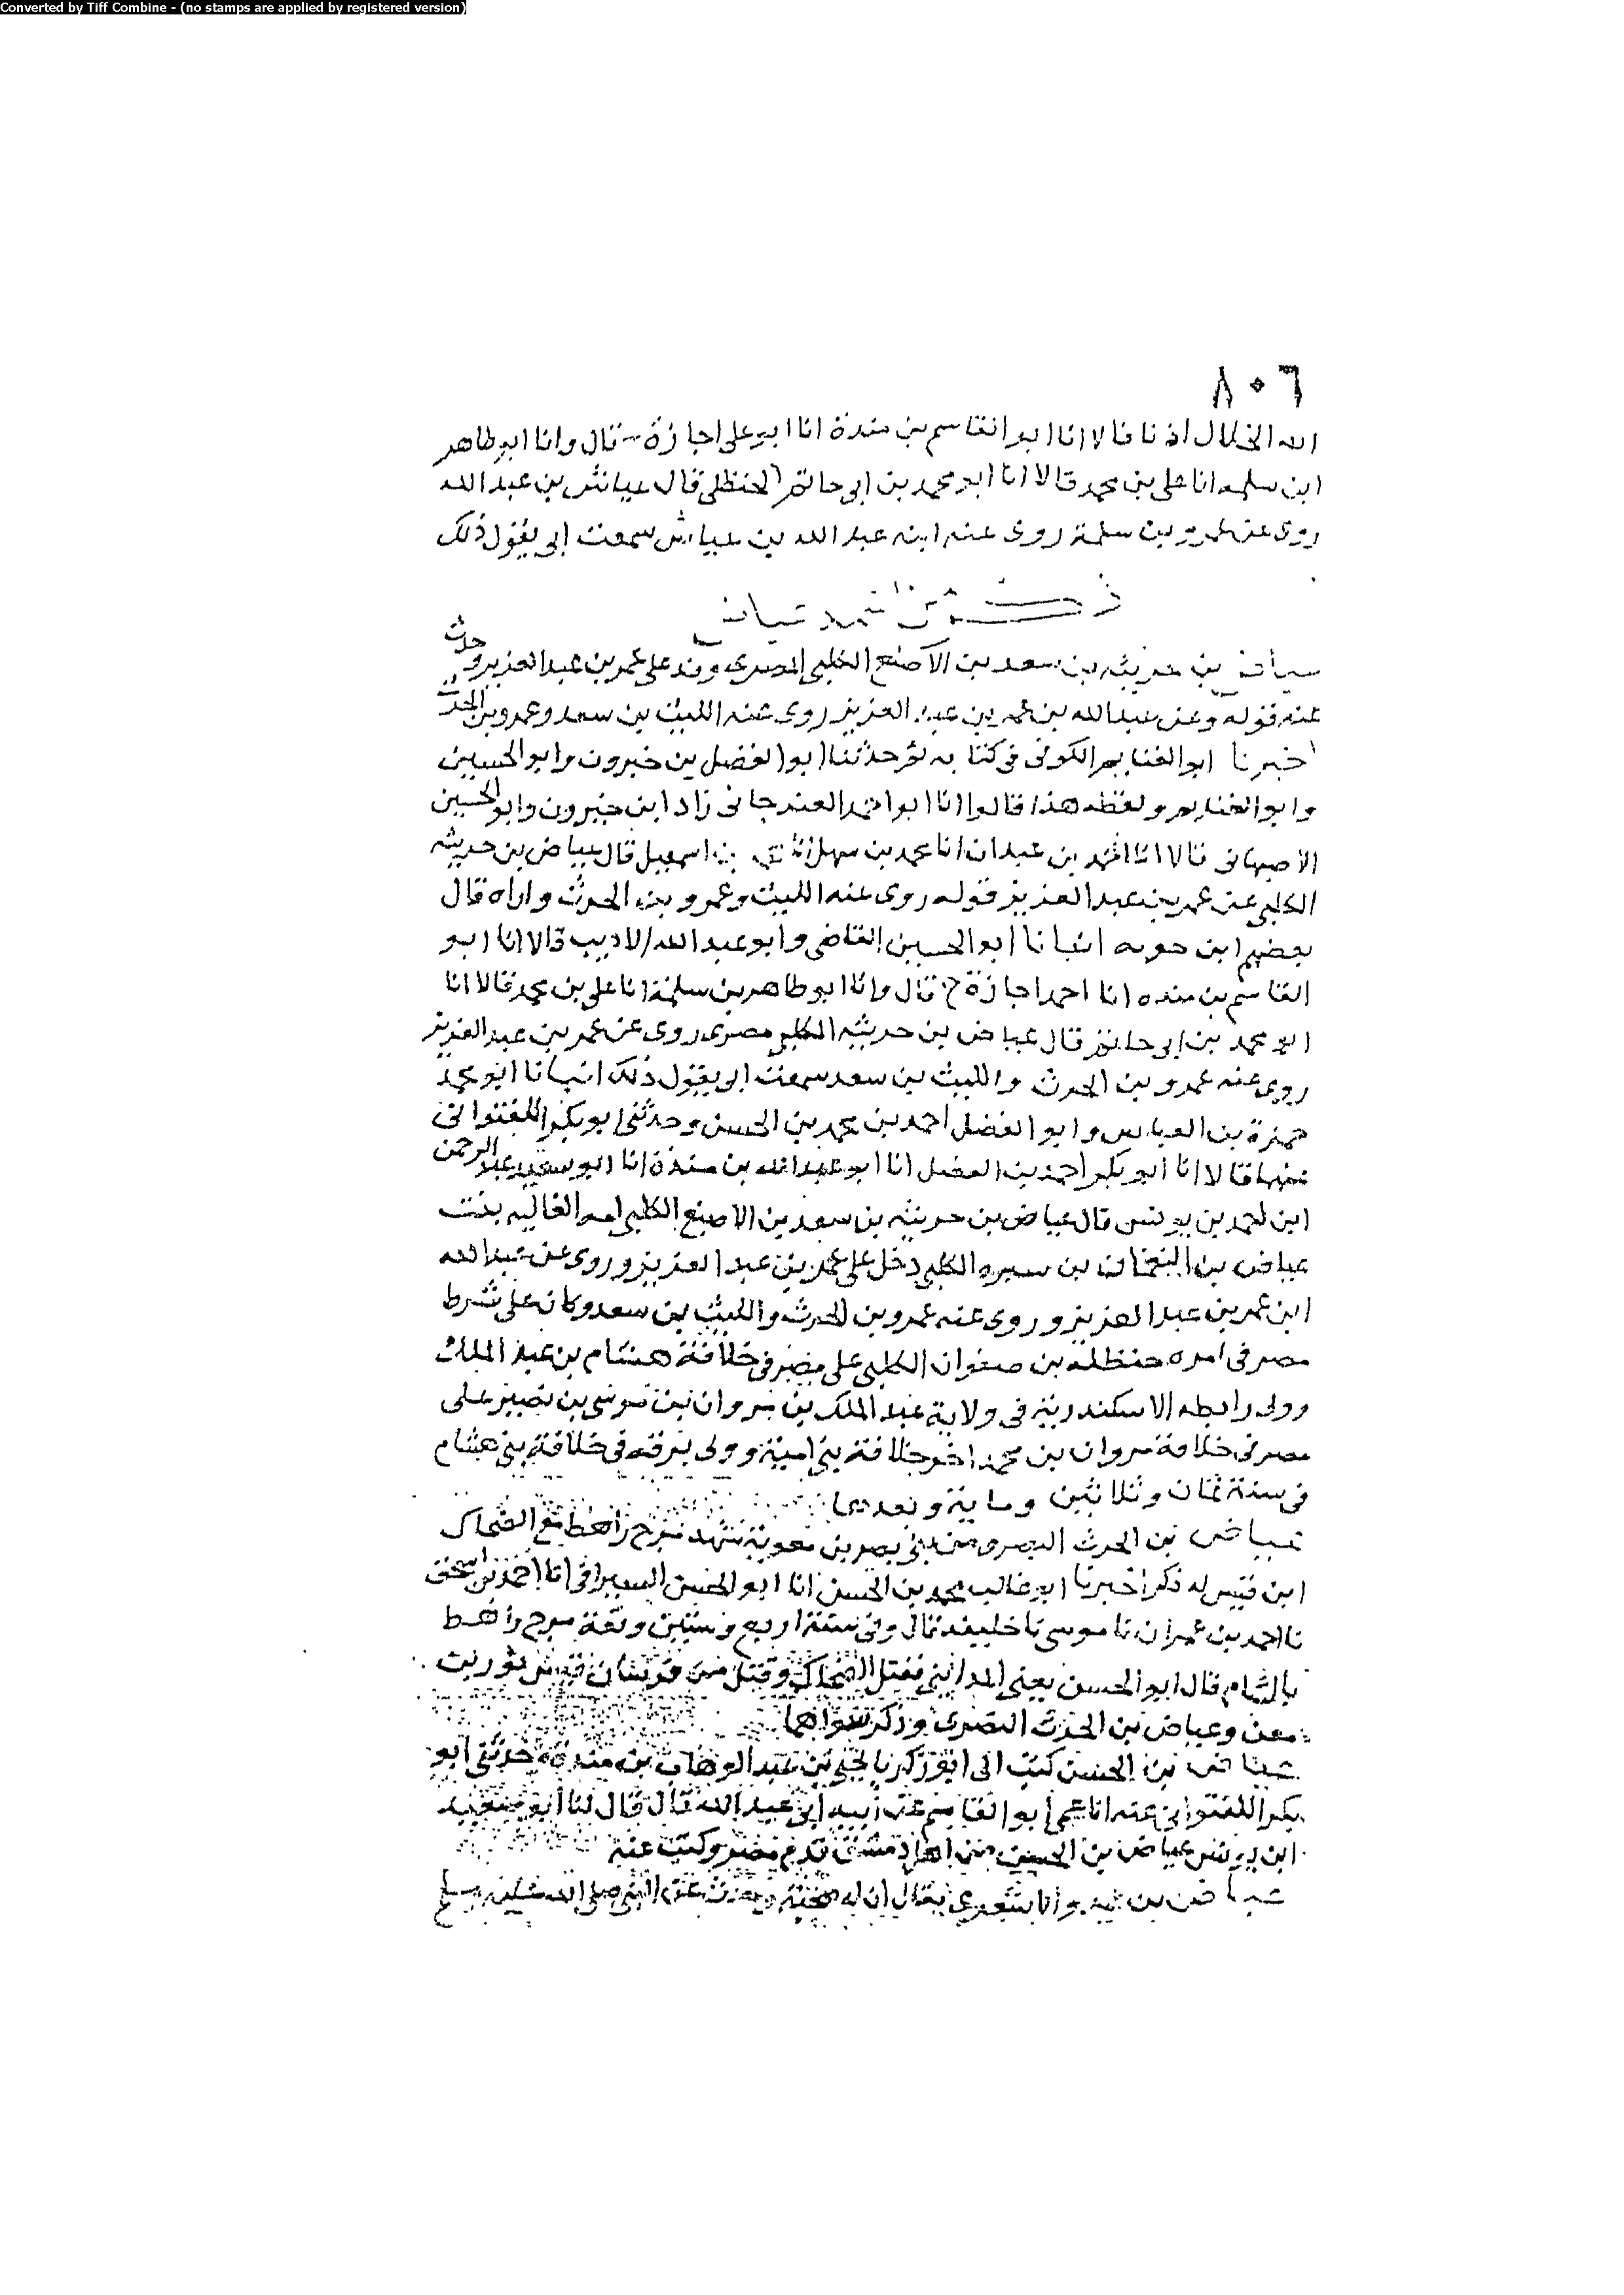 Converted by Tiff Combine - (no stamps are applied by registered version)
٨٠٦
الله الخلال اذنا قالا انا ابو القاسم بن مندة انا ابو على اجازة قال وانا ابو طاهر
ابن سلمه انا على بن محمد قالا انا ابو محمد بن ابى حاتم الحنظلى قال عياش بن عبد الله
روى عن بن سلمة روى عنه ابنه عبد الله بن عياش سمعت ابى يقول ذلك
ذكر من
عياض بن حريثه بن سعد بن الاصبغ الكلبى المصرى وفد على عمر بن عبد العزيز وحدث
عنه قوله وعن عبد الله بن عمر بن عبد العزيز روى عنه الليث بن سعد وعمرو بن الحرث
اخبرنا ابو الغنايم الكوفى فى كتابه ثم حدثنا ابو الفضل بن خيرون وابو الحسين
وابو الغنايم ولفظه هذا قالوا انا ابو احمد الغندجانى زاد ابن خيرون وابو الحسين
الاصبهانى قالا انا احمد بن عبدان انا محمد بن سهل انا بن اسمعيل قال عياض بن حريثه
الكلبى عن عمر بن عبد العزيز قوله روى عنه الليث وعمرو بن الحرث واراه قال
بعضهم ابن حويه انبانا ابو الحسين القاضى وابو عبد الله الاديب قالا انا ابو
القاسم بن منده انا احمد اجازة ح قال وانا ابو طاهر بن سلمة انا على بن محمد قالا انا
ابو محمد بن ابى حاتم قال عياض بن حريثه الكلبى مصرى روى عن عمر بن عبد العزيز
روى عنه عمرو بن الحرث والليث بن سعد سمعت ابى يقول ذلك انبانا ابو محمد
حمزة بن العباس وابو الفضل احمد بن محمد بن الحسن وحدثنى ابو بكر اللفتوانى
عنهما قالا انا ابو بكر احمد بن الفضل انا ابو عبد الله بن مندة انا ابو سعيد عبد الرحمن
ابن احمد بن يونس قال عياض بن حريثه بن سعد بن الاصبغ الكلبى امه الغاليه بنت
عياض بن النعمان بن سبره الكلبى دخل على عمر بن عبد العزيز وروى عن عبد الله
ابن عمر بن عبد العزيز وروى عنه عمرو بن الحرث والليث بن سعد وكان على شرط
مصر فى امره حنظله بن صفوان الكلبى على مصر فى خلافة هشام بن عبد الملك
وولى رابطه الاسكندرية فى ولاية عبد الملك بن مروان بن موسى بن نصير على
مصر فى خلافة مروان بن محمد اخر خلافة بنى امية وولى برقه فى خلافة بنى هشام
فى سنة ثمان وثلاثين وماية وبعدها
عياض بن الحرث النصرى من بنى نصر بن معوية شهد مرج راهط مع الضحاك
ابن قيس له ذكر اخبرنا ابو غالب محمد بن الحسن انا ابو الحسن السيرافى انا احمد بن اسحق
نا احمد بن عمران نا موسى نا خليفه قال وفى سنة اربع وستين وقعة مرج راهط
بالشام قال ابو الحسن يعنى المداينى فقتل الضحاك وقتل من فرسان قيس ثور بن
معن وعياض بن الحرث النصرى وذكر سواهما
عياض بن الحسن كتب الى ابو زكريا يحيى بن عبد الوهاب بن مندة وحدثنى ابو
بكر اللفتوانى عنه انا عمى ابو القاسم عن ابيه ابى عبد الله قال قال لنا ابو سعيد
ابن يونس عياض بن الحسن من اهل دمشق قدم مصر وكتب عنه
عياض بن عمرو الاشعرى يقال ان له صحبة وحدث عن النبى صلى الله عليه وسلم